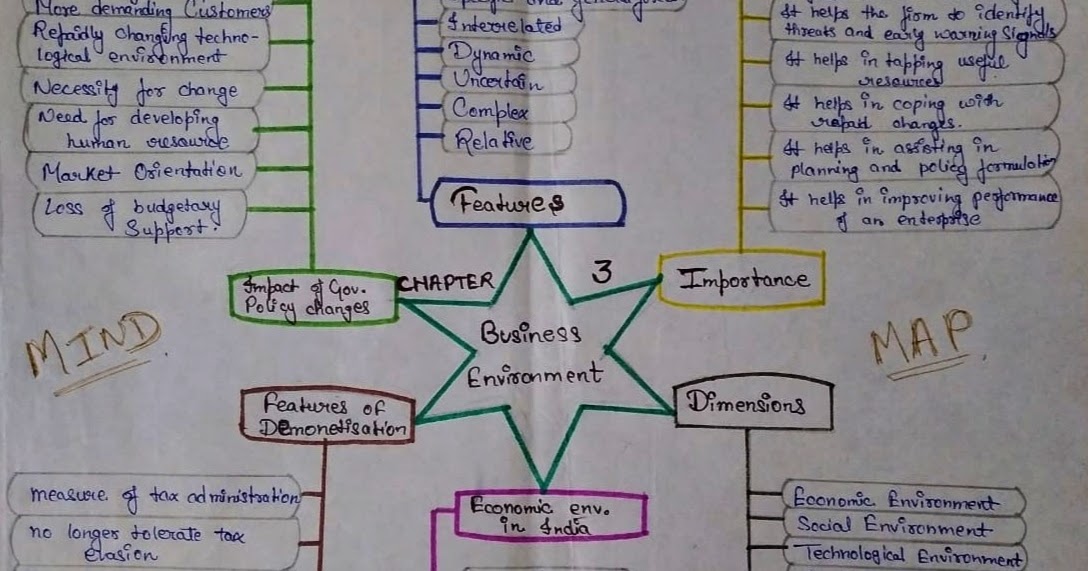 More demanding Customers
Repaidly changing techno-
logical environment
Necessity for change
Need for developing
human resource
Market Orientation
Loss of budgetary
Support.
Impact of Gov.
Policy changes
Interrelated
Dynamic
Uncertain
Complex
Relative
Features
It helps the firm to identify
threats and early warning signals
It helps in tapping useful
resources
It helps in coping with
repaid changes.
It helps in assisting in
planning and policy formulation
It helps in improving performance
of an enterprise
Importance
CHAPTER 3
Business
Environment
MIND
MAP
Features of
Demonetisation
measure of tax administration
no longer tolerate tax
elasion
Economic env.
in India
Dimensions
Economic Environment
Social Environment
Technological Environment